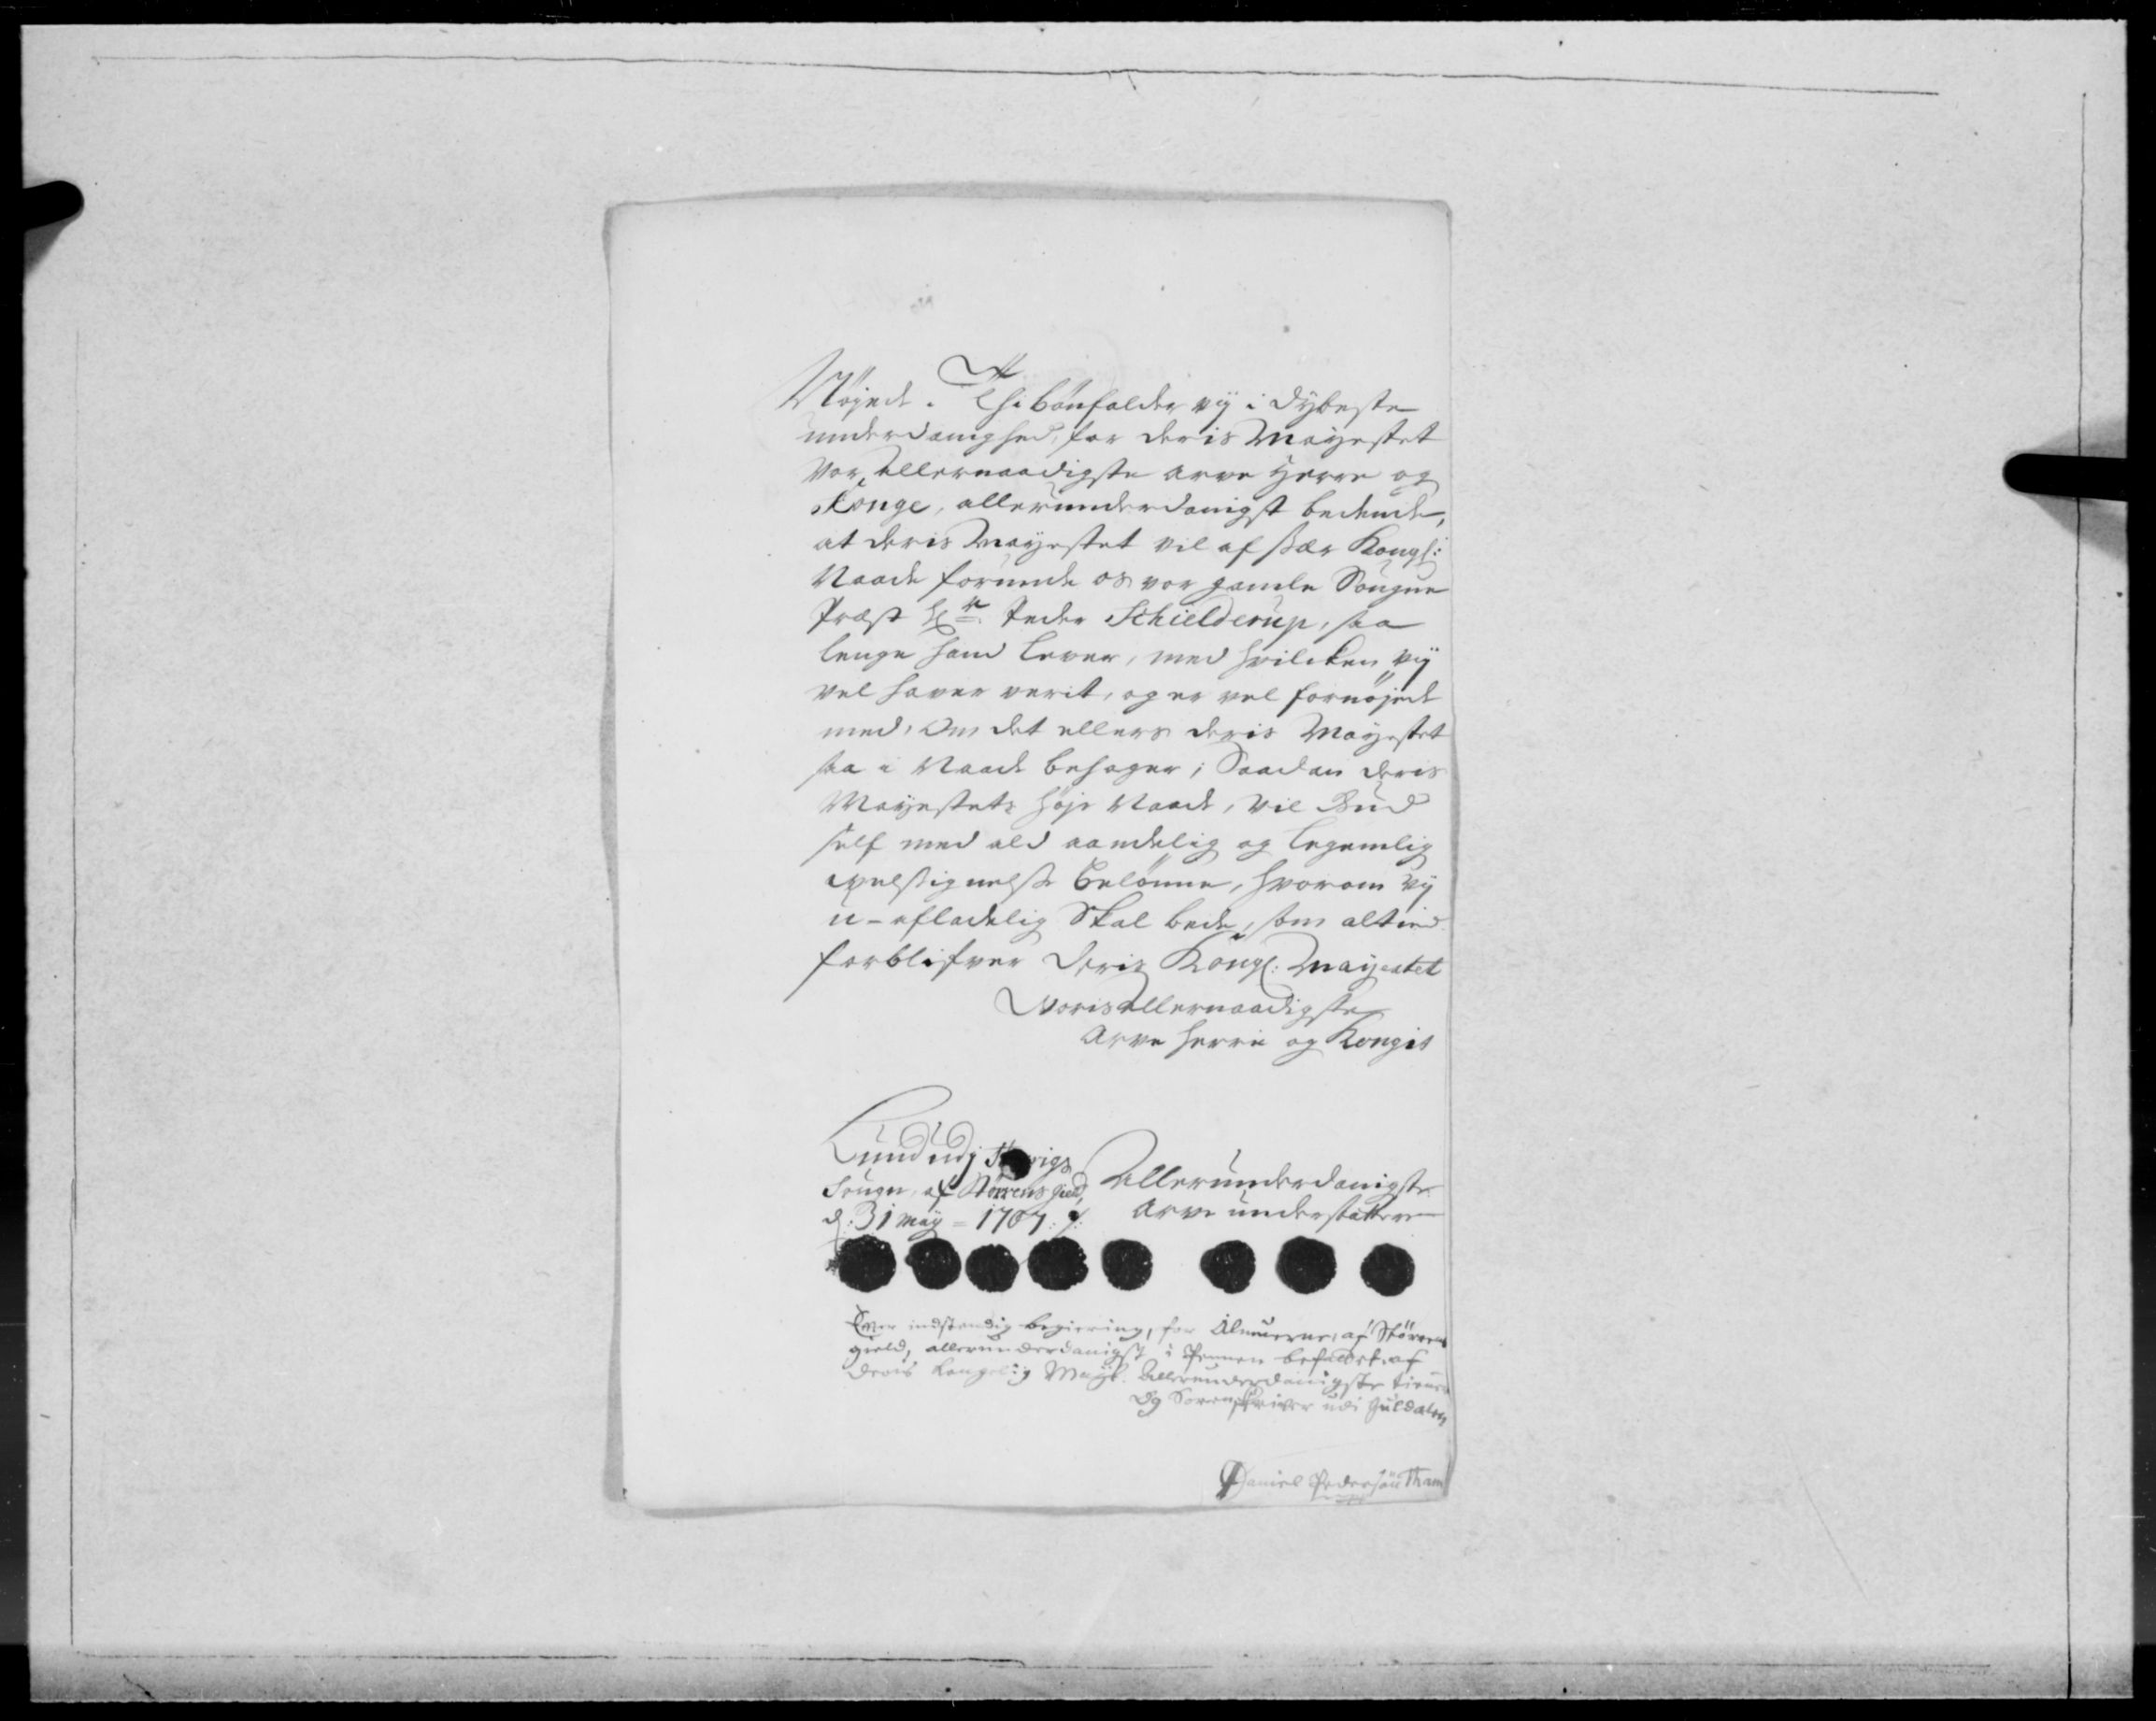 Nöjede. Thi bönfalder vij i dybeste
underdanighed, for deris Mayestet
vor allernaadigste arve Herre og
Konge, allerunderdanigst bedende,
at deris Mayestet vil af sær Kongl:
Naade forunde os vor gamle Sougne
Præst Hr: Peder Schielderup, saa
lenge hand lever, med hvilcken vij
vel haver verit, og er vel fornöjede
med, Om det ellers deris Mayestet
saa i Naade behager; Saadan deris
Mayestets höje Naade, vil Gud
self med ald aandelig og legemlig
velsignelse belönne, hvorom vij
u-afladelig Skal bede, som altiid
forblifver deris Kongl: Mayestet
Voris allernaadigste
Arve herre og Kongis
Lund udj
Sougn, af Störrens gield,
d: 31 Maÿ = 1707 :/:
Allerunderdanigste
Arve understattere
Efter indstendig begiering, for Almuerne, af Störrens
gield, allerunderdanigst i Pennen befattet, af
deris kongelig Mayt. Allerunderdanigste tienere
og Sorenskriver udi Guldalen
Daniel Pedersön Tham